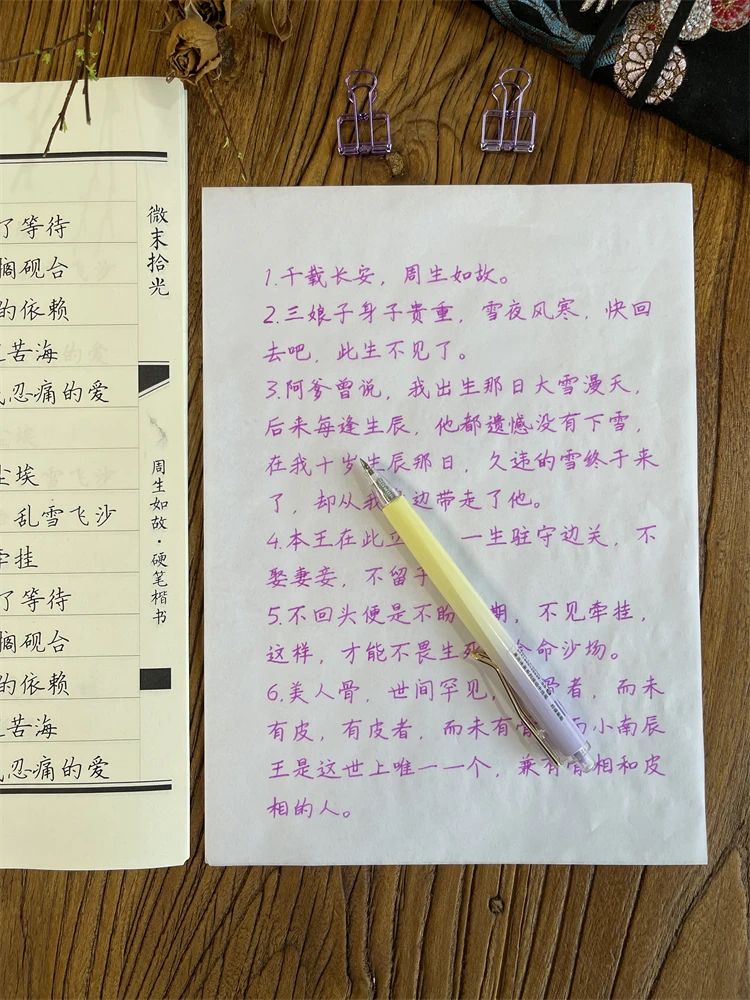 了等待
搁砚台
的依赖
苦海
忍痛的爱
尘埃
乱雪飞沙
牵挂
了等待
搁砚台
的依赖
苦海
忍痛的爱
微末拾光
周生如故·硬笔楷书
1.千载长安，周生如故。
2.三娘子身子贵重，雪夜风寒，快回
去吧，此生不见了。
3.阿爹曾说，我出生那日大雪漫天，
后来每逢生辰，他都遗憾没有下雪，
在我十岁生辰那日，久违的雪终于来
了，却从我 边带走了他。
4.本王在此立 一生驻守边关，不
娶妻妾，不留子
5.不回头便是不盼 期，不见牵挂，
这样，才能不畏生死 余命沙场。
6.美人骨，世间罕见， 骨者，而未
有皮，有皮者，而未有骨 而小南辰
王是这世上唯一一个，兼有骨相和皮
相的人。